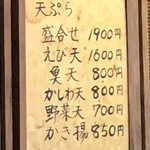 天ぷら
盛合せ 1900円
えび天 1600円
魚天 800円
かしわ天 800円
野菜天 700円
かき揚 850円